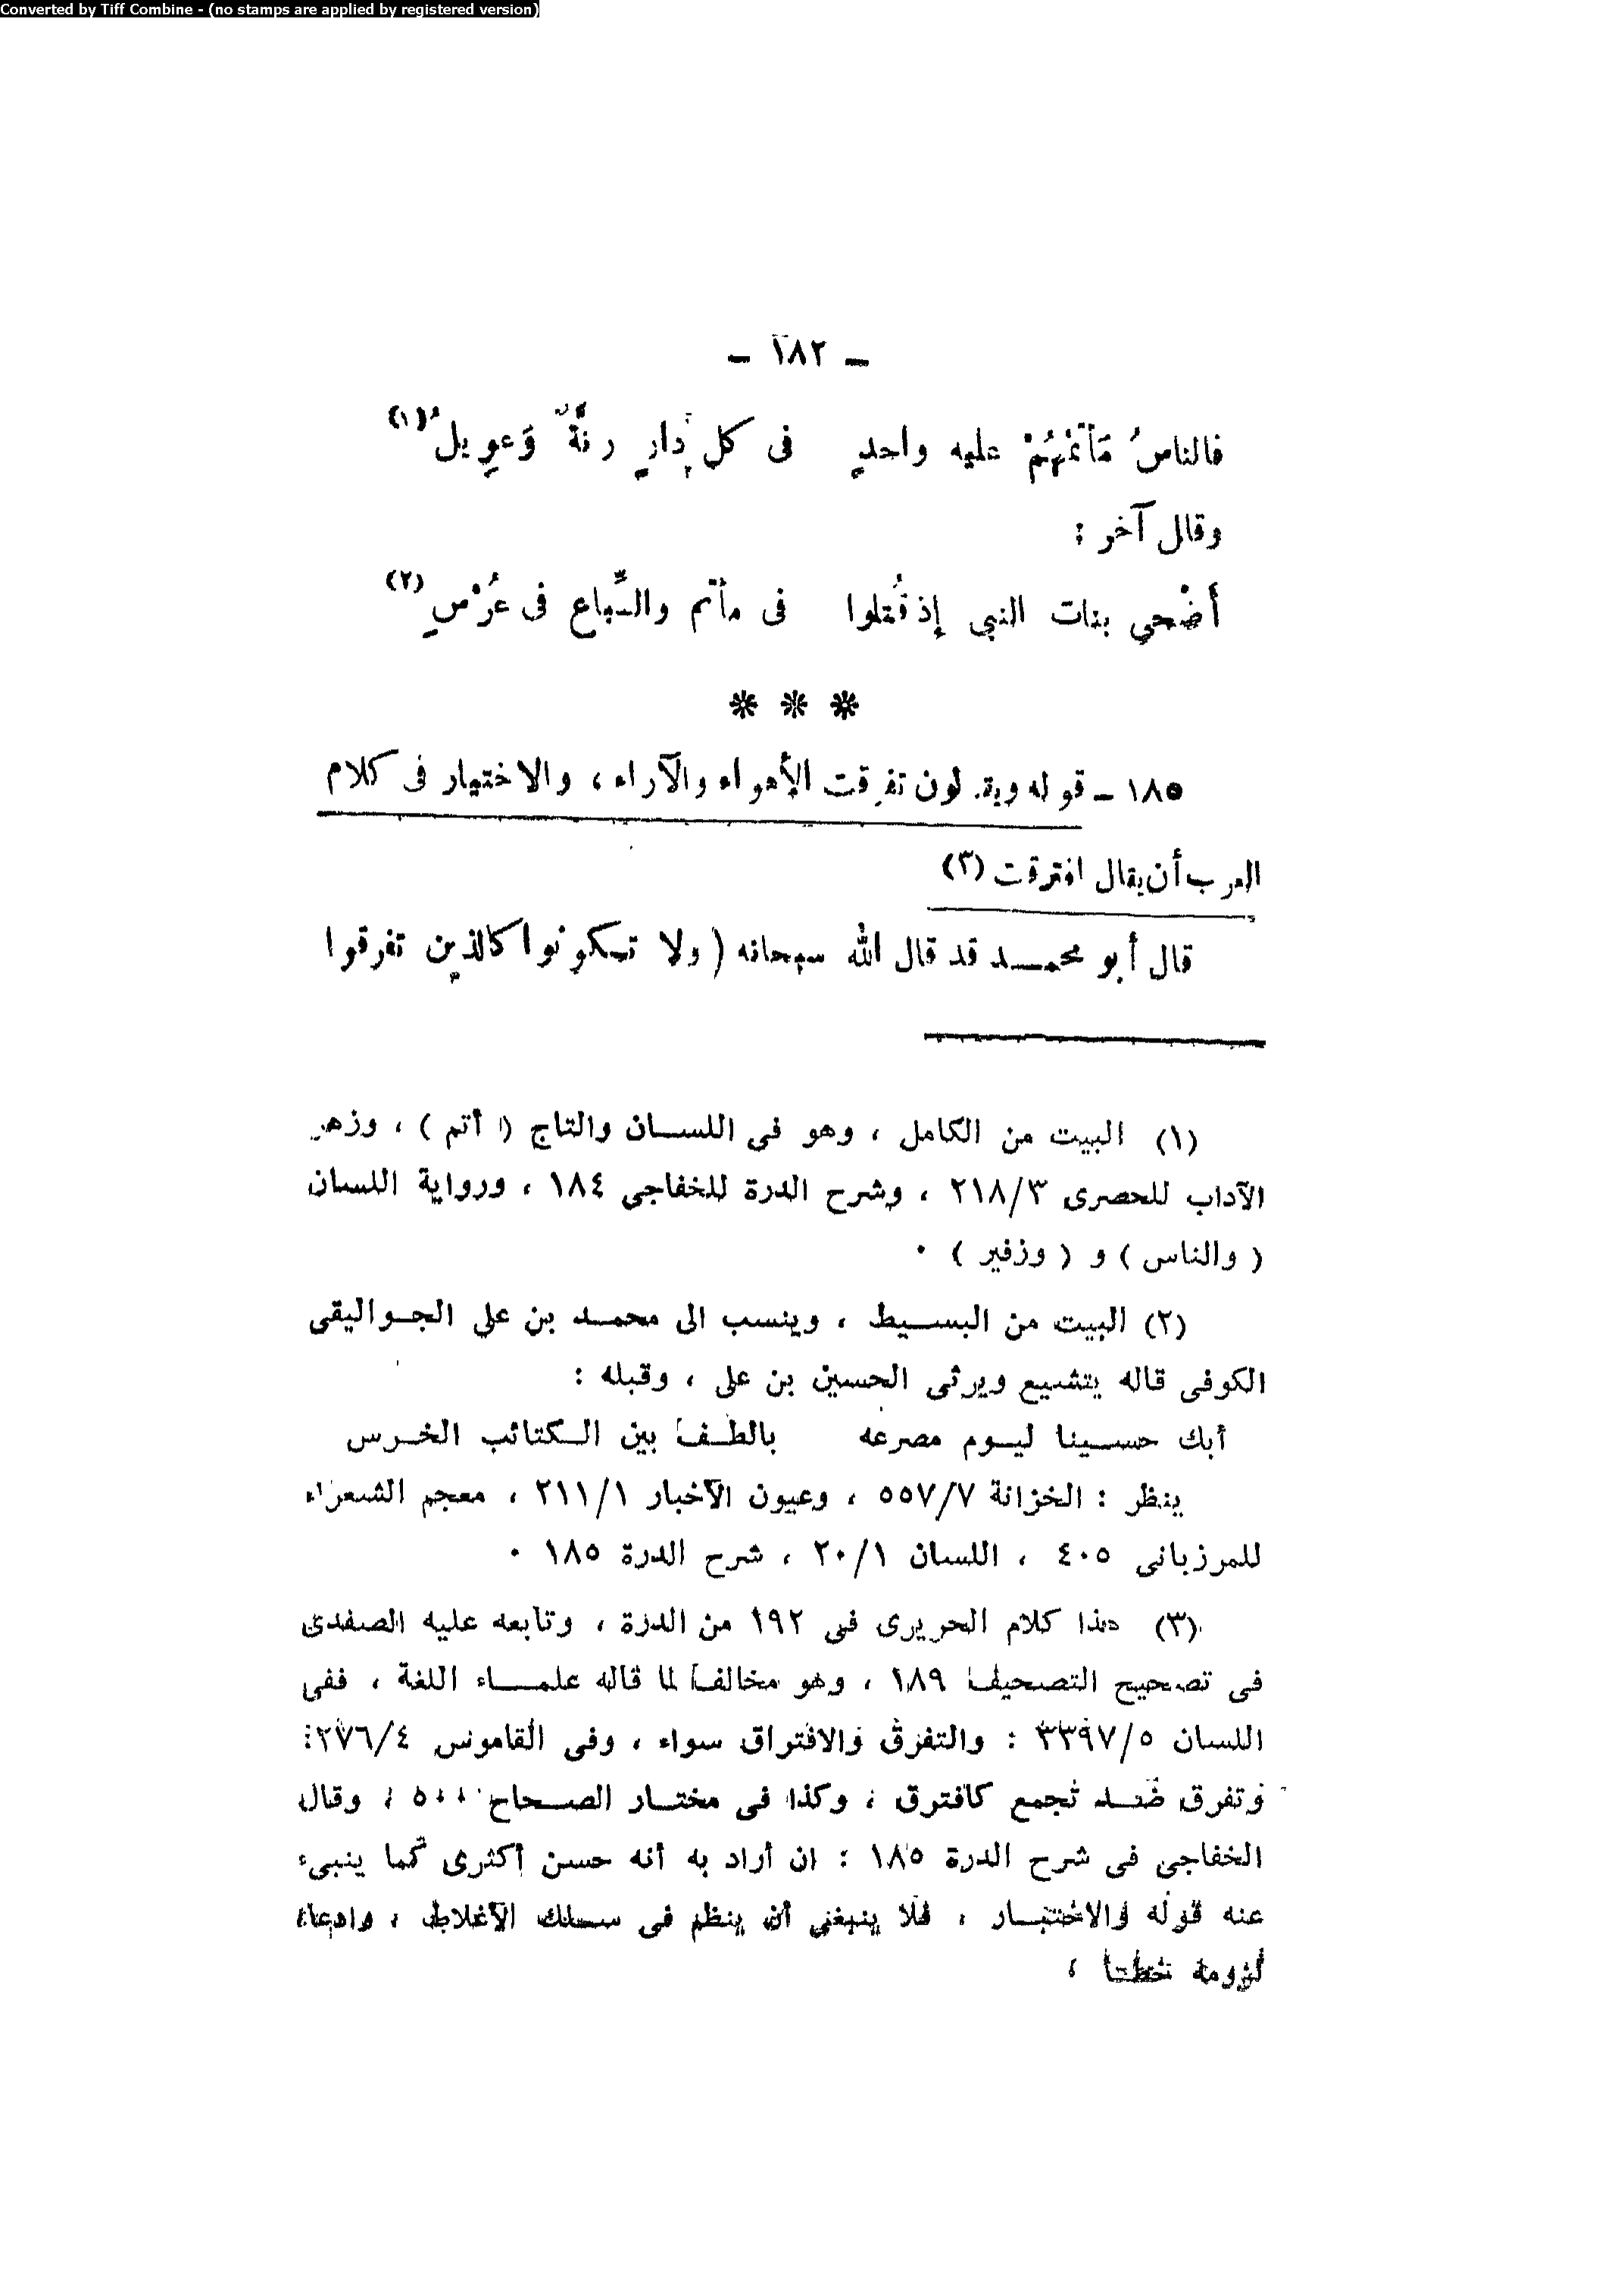 Converted by Tiff Combine - (no stamps are applied by registered version)
— ١٨٢ —
فالناسُ مَأتَمُهُمْ عليه واحدٍ فى كل دارٍ رنَّةٌ وَعوِيلُ (١)
وقال آخر :
أَضْحي بنات النبى إذ قُتلوا فى مأتم والسِّباع فى عُرْسٍ (٢)
* * *
١٨٥ – قوله ويقولون تفرقت الأهواء والآراء ، والاختيار فى كلام
العرب أن يقال افترقت (٣)
قال أبو محمد قد قال الله سبحانه ( ولا تكونوا كالذين تفرقوا
(١) البيت من الكامل ، وهو فى اللسان والتاج ( أتم ) ، وزهر
الآداب للحصرى ٢١٨/٣ ، وشرح الدرة للخفاجى ١٨٤ ، ورواية اللسان
( والناس ) و ( وزفير ) ٠
(٢) البيت من البسيط ، وينسب الى محمد بن على الجواليقى
الكوفى قاله يتشيع ويرثى الحسين بن على ، وقبله :
أبك حسينا ليوم مصرعه بالطف بين الكتائب الخرس
ينظر : الخزانة ٥٥٧/٧ ، وعيون الآخبار ٢١١/١ ، معجم الشعراء
للمرزبانى ٤٠٥ ، اللسان ٢٠/١ ، شرح الدرة ١٨٥ ٠
(٣) هذا كلام الحريرى فى ١٩٢ من الدرة ، وتابعه عليه الصفدى
فى تصحيح التصحيف ١٨٩ ، وهو مخالف لما قاله علماء اللغة ، ففى
اللسان ٣٣٩٧/٥ : والتفرق والافتراق سواء ، وفى القاموس ٢٧٦/٤ :
وتفرق ضد تجمع كافترق ، وكذا فى مختار الصحاح ٥٠٠ ، وقال
الخفاجى فى شرح الدرة ١٨٥ : ان أراد به أنه حسن أكثرى كما ينبىء
عنه قوله والاختيار ، فلا ينبغى أن ينظم فى سلك الآغلاط ، وادعاء
لزومه خطأ ،